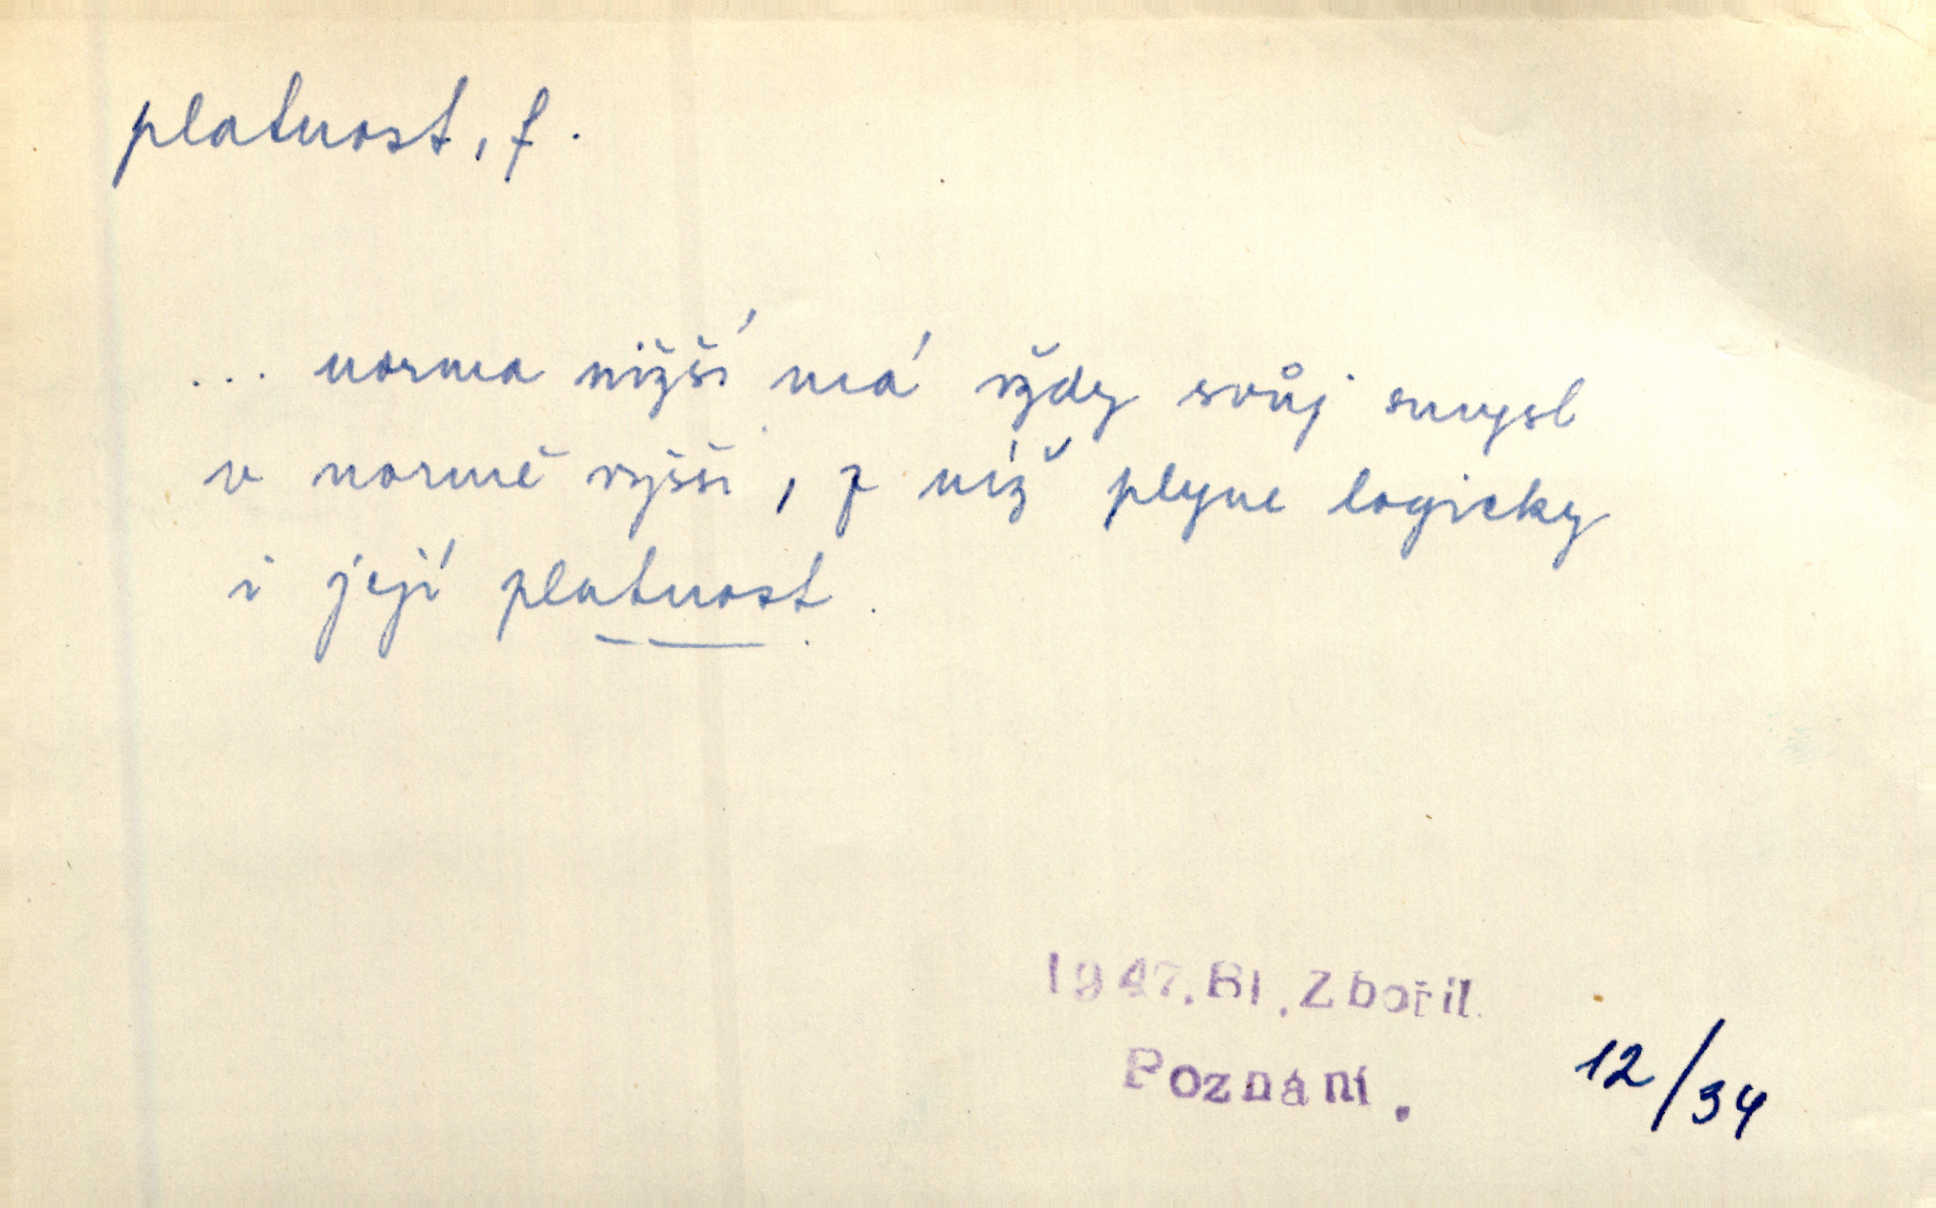 platnost, f.
... norma nižší má vždy svůj smysl
v normě vyšší, z níž plyne logicky
i její platnost.
1947.Bl.Zbořil.
Poznání.
12/34